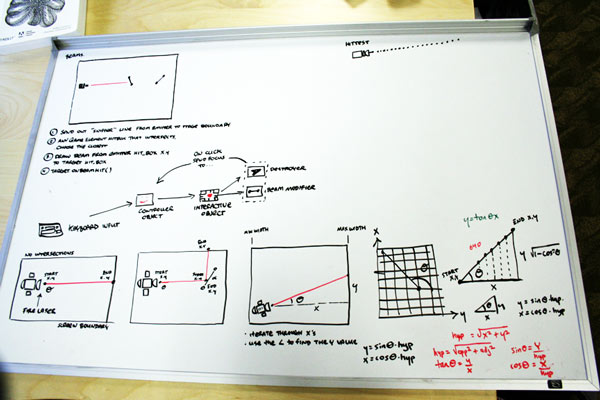 BEAMS
HITTEST
① SEND OUT "SURFACE" LINE FROM EMITTER TO STAGE BOUNDARY
② ANY GAME ELEMENT HITBOX THAT INTERSECTS,
CHOOSE THE CLOSEST
③ DRAW BEAM FROM EMITTER HIT_BOX X,Y
TO TARGET HIT_BOX
④ TARGET ONBEAMHIT()
ON CLICK
SEND FOCUS
TO
DESTROYER
BEAM MODIFIER
CONTROLLER
OBJECT
INTERACTIVE
OBJECT
KEYBOARD INPUT
NO INTERSECTIONS
START
X,Y
END
X,Y
FIRE LASER
SCREEN BOUNDARY
END
X,Y
START
X,Y
X,Y
θ
END
X,Y
WIDTH
MAX WIDTH
θ
X
Y
• ITERATE THROUGH X'S
• USE THE ∠ TO FIND THE Y VALUE
X
θ
Y
y = sin θ · hyp
x = cos θ · hyp
y = tan θ x
END X,Y
START
X,Y
hyp
θ
X
√1-cos²θ
θ
Y
X
y = sin θ · hyp
x = cos θ · hyp
hyp = √x² + y²
hyp = √opp² + adj²
tan θ = y/x
sin θ = y/hyp
cos θ = x/hyp